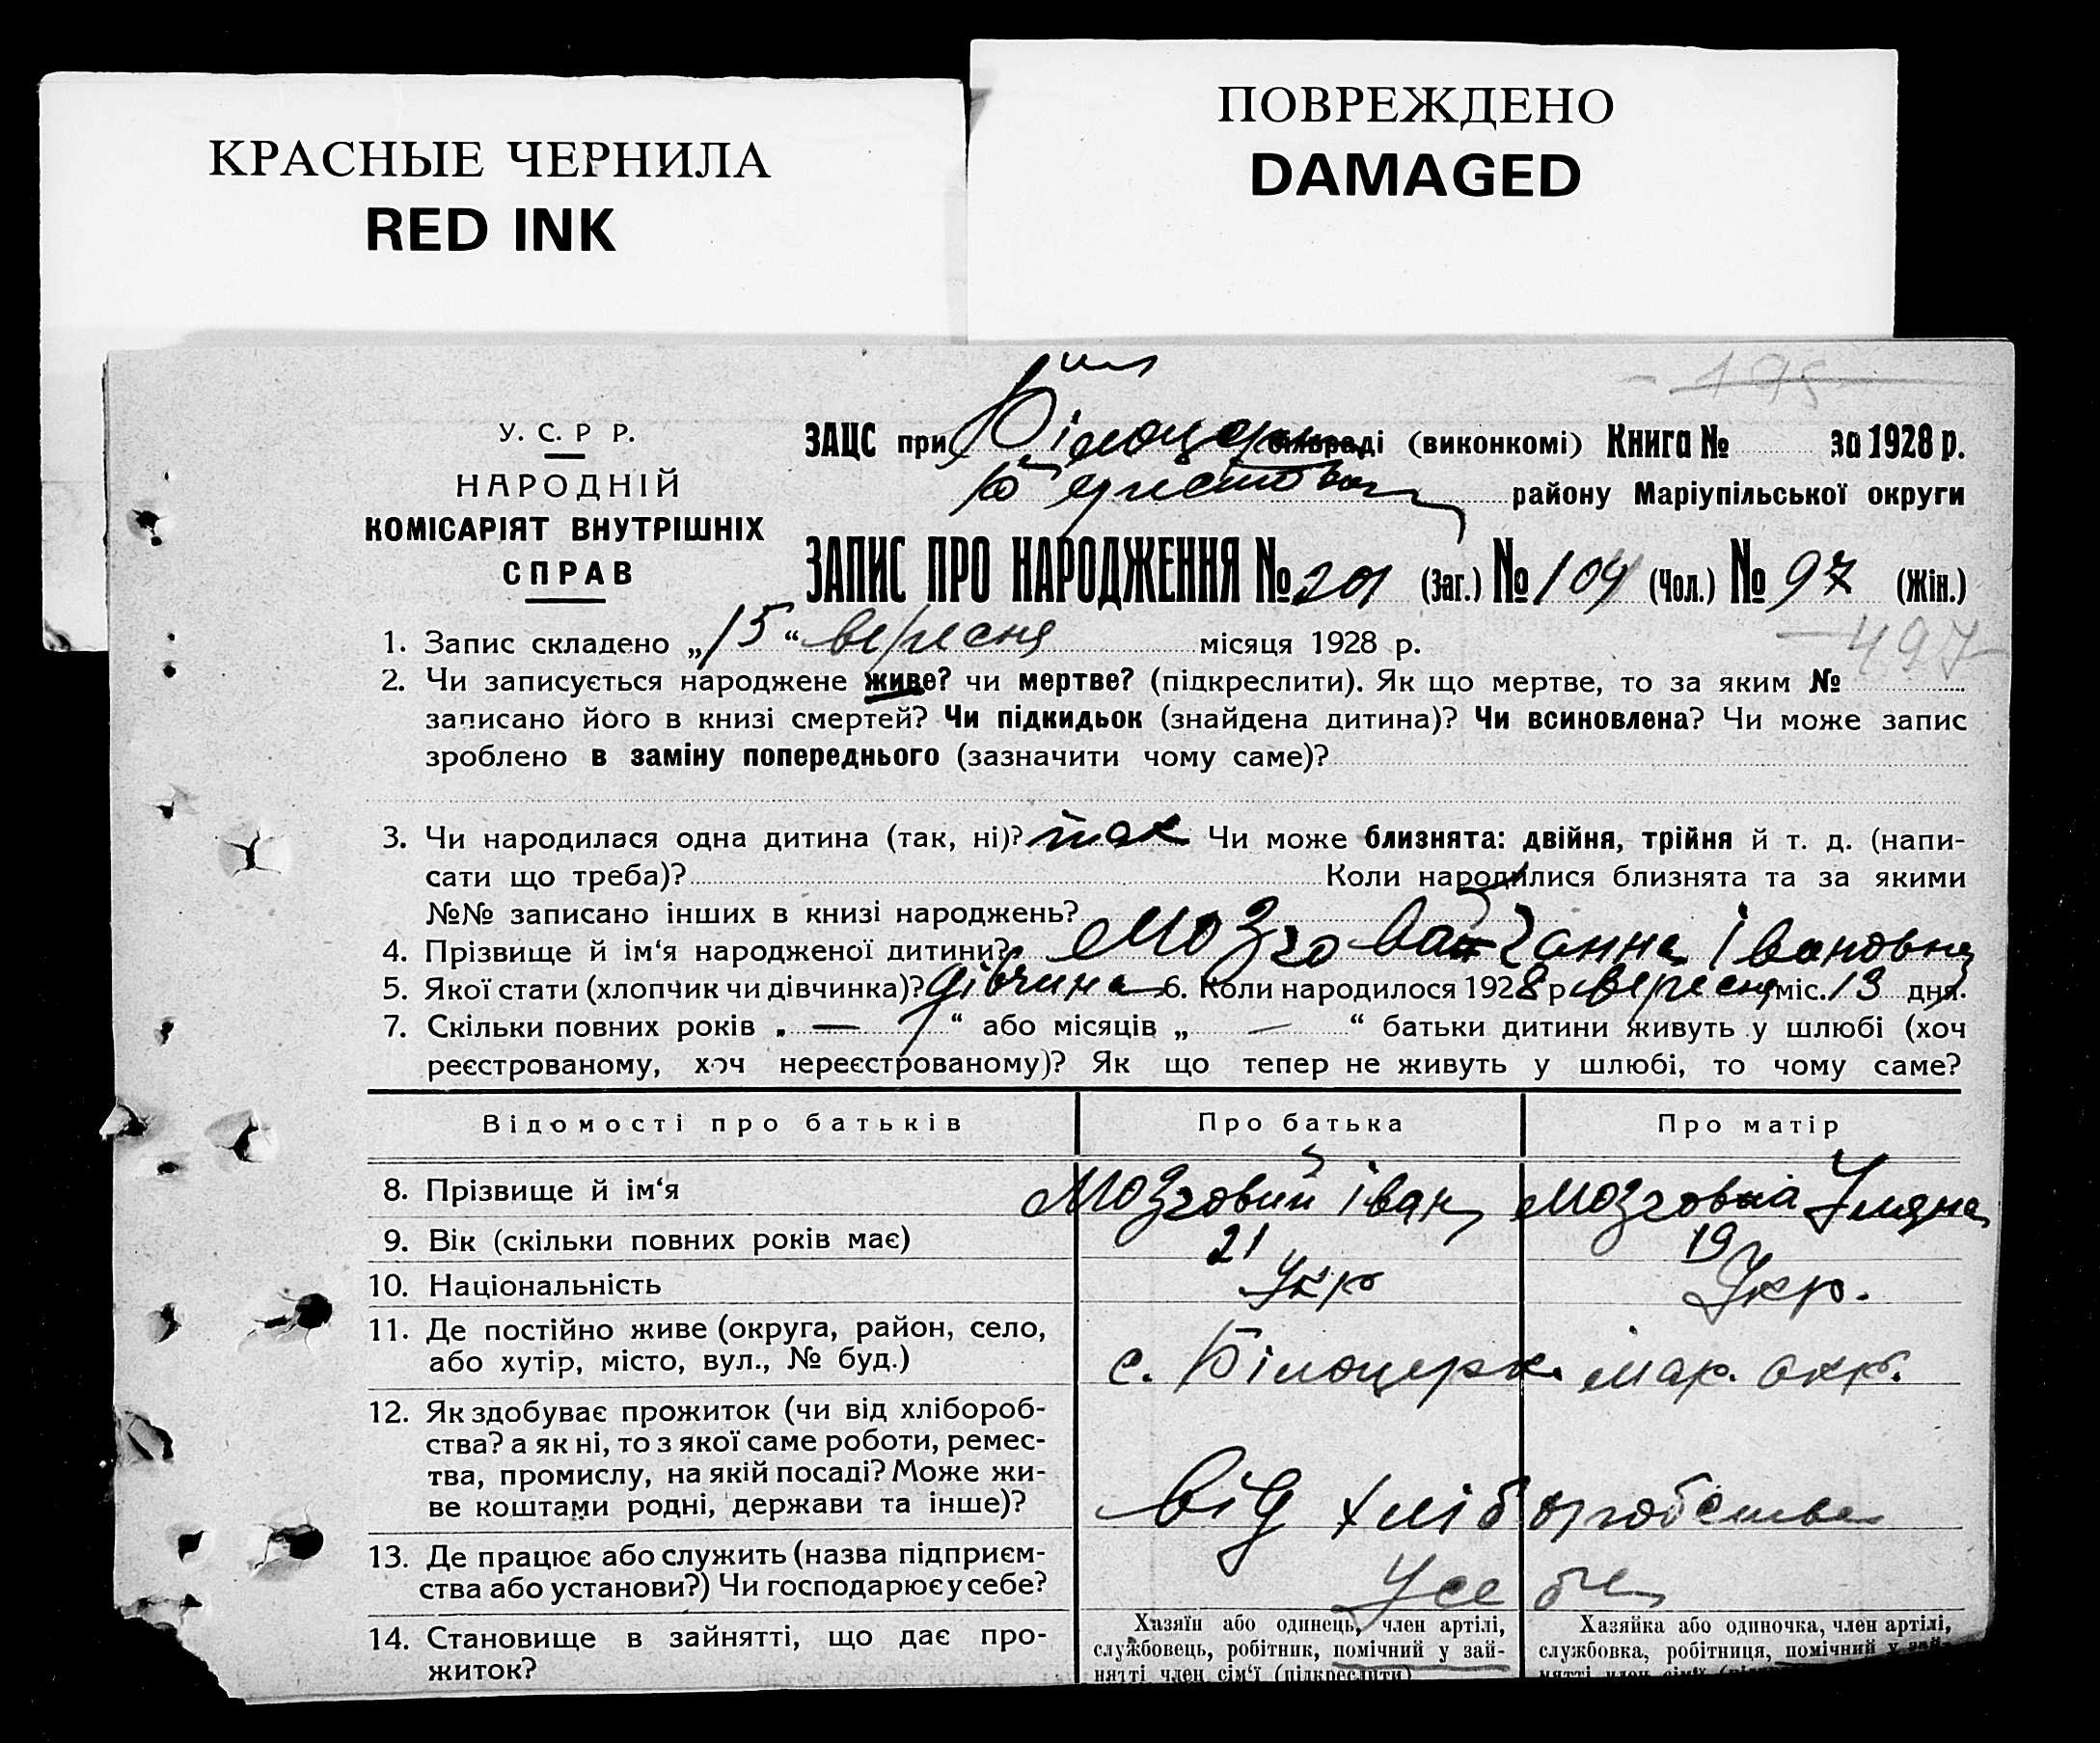 КРАСНЫЕ ЧЕРНИЛА
RED INK
ПОВРЕЖДЕНО
DAMAGED
195
У. С. Р Р.
НАРОДНІЙ
КОМІСАРІЯТ ВНУТРІШНІХ
СПРАВ
ЗАЦС при Білоцерк сільраді (виконкомі) Книга № за 1928 р.
району Маріупільської округи
ЗАПИС ПРО НАРОДЖЕННЯ № 201 (Заг.) № 104 (Чол.) № 97 (Жін.)
497
1. Запис складено „15“ вересня місяця 1928 р.
2. Чи записується народжене живе? чи мертве? (підкреслити). Як що мертве, то за яким №
записано його в книзі смертей? Чи підкидьок (знайдена дитина)? Чи всиновлена? Чи може запис
зроблено в заміну попереднього (зазначити чому саме)?
3. Чи народилася одна дитина (так, ні)? так Чи може близнята: двійня, трійня й т. д. (напи-
сати що треба)? Коли народилися близнята та за якими
№№ записано інших в книзі народжень?
4. Прізвище й ім‘я народженої дитини? Мозгова Ганна Івановна
5. Якої стати (хлопчик чи дівчинка)? дівчина 6. Коли народилося 1928 р вересня міс. 13 дня.
7. Скільки повних років „ — “ або місяців „ — “ батьки дитини живуть у шлюбі (хоч
реєстрованому, хоч нереєстрованому)? Як що тепер не живуть у шлюбі, то чому саме?
Відомості про батьків Про батька Про матір
8. Прізвище й ім‘я Мозговий Іван Мозгова Уляна
9. Вік (скільки повних років має) 21 19
10. Національність Укр Укр.
11. Де постійно живе (округа, район, село,
або хутір, місто, вул., № буд.) с. Білоцерк. Мар. окр.
12. Як здобуває прожиток (чи від хлібороб-
ства? а як ні, то з якої саме роботи, ремес-
тва, промислу, на якій посаді? Може жи-
ве коштами родні, держави та інше)? від хліборобства
13. Де працює або служить (назва підприєм-
ства або установи?) Чи господарює у себе? У себе
14. Становище в зайнятті, що дає про-
житок?
Хазяїн або одинець, член артілі,
службовець, робітник, помічний у зай-
нятті член сім‘ї (підкреслити)
Хазяйка або одиночка, член артілі,
службовка, робітниця, помічний у зай-